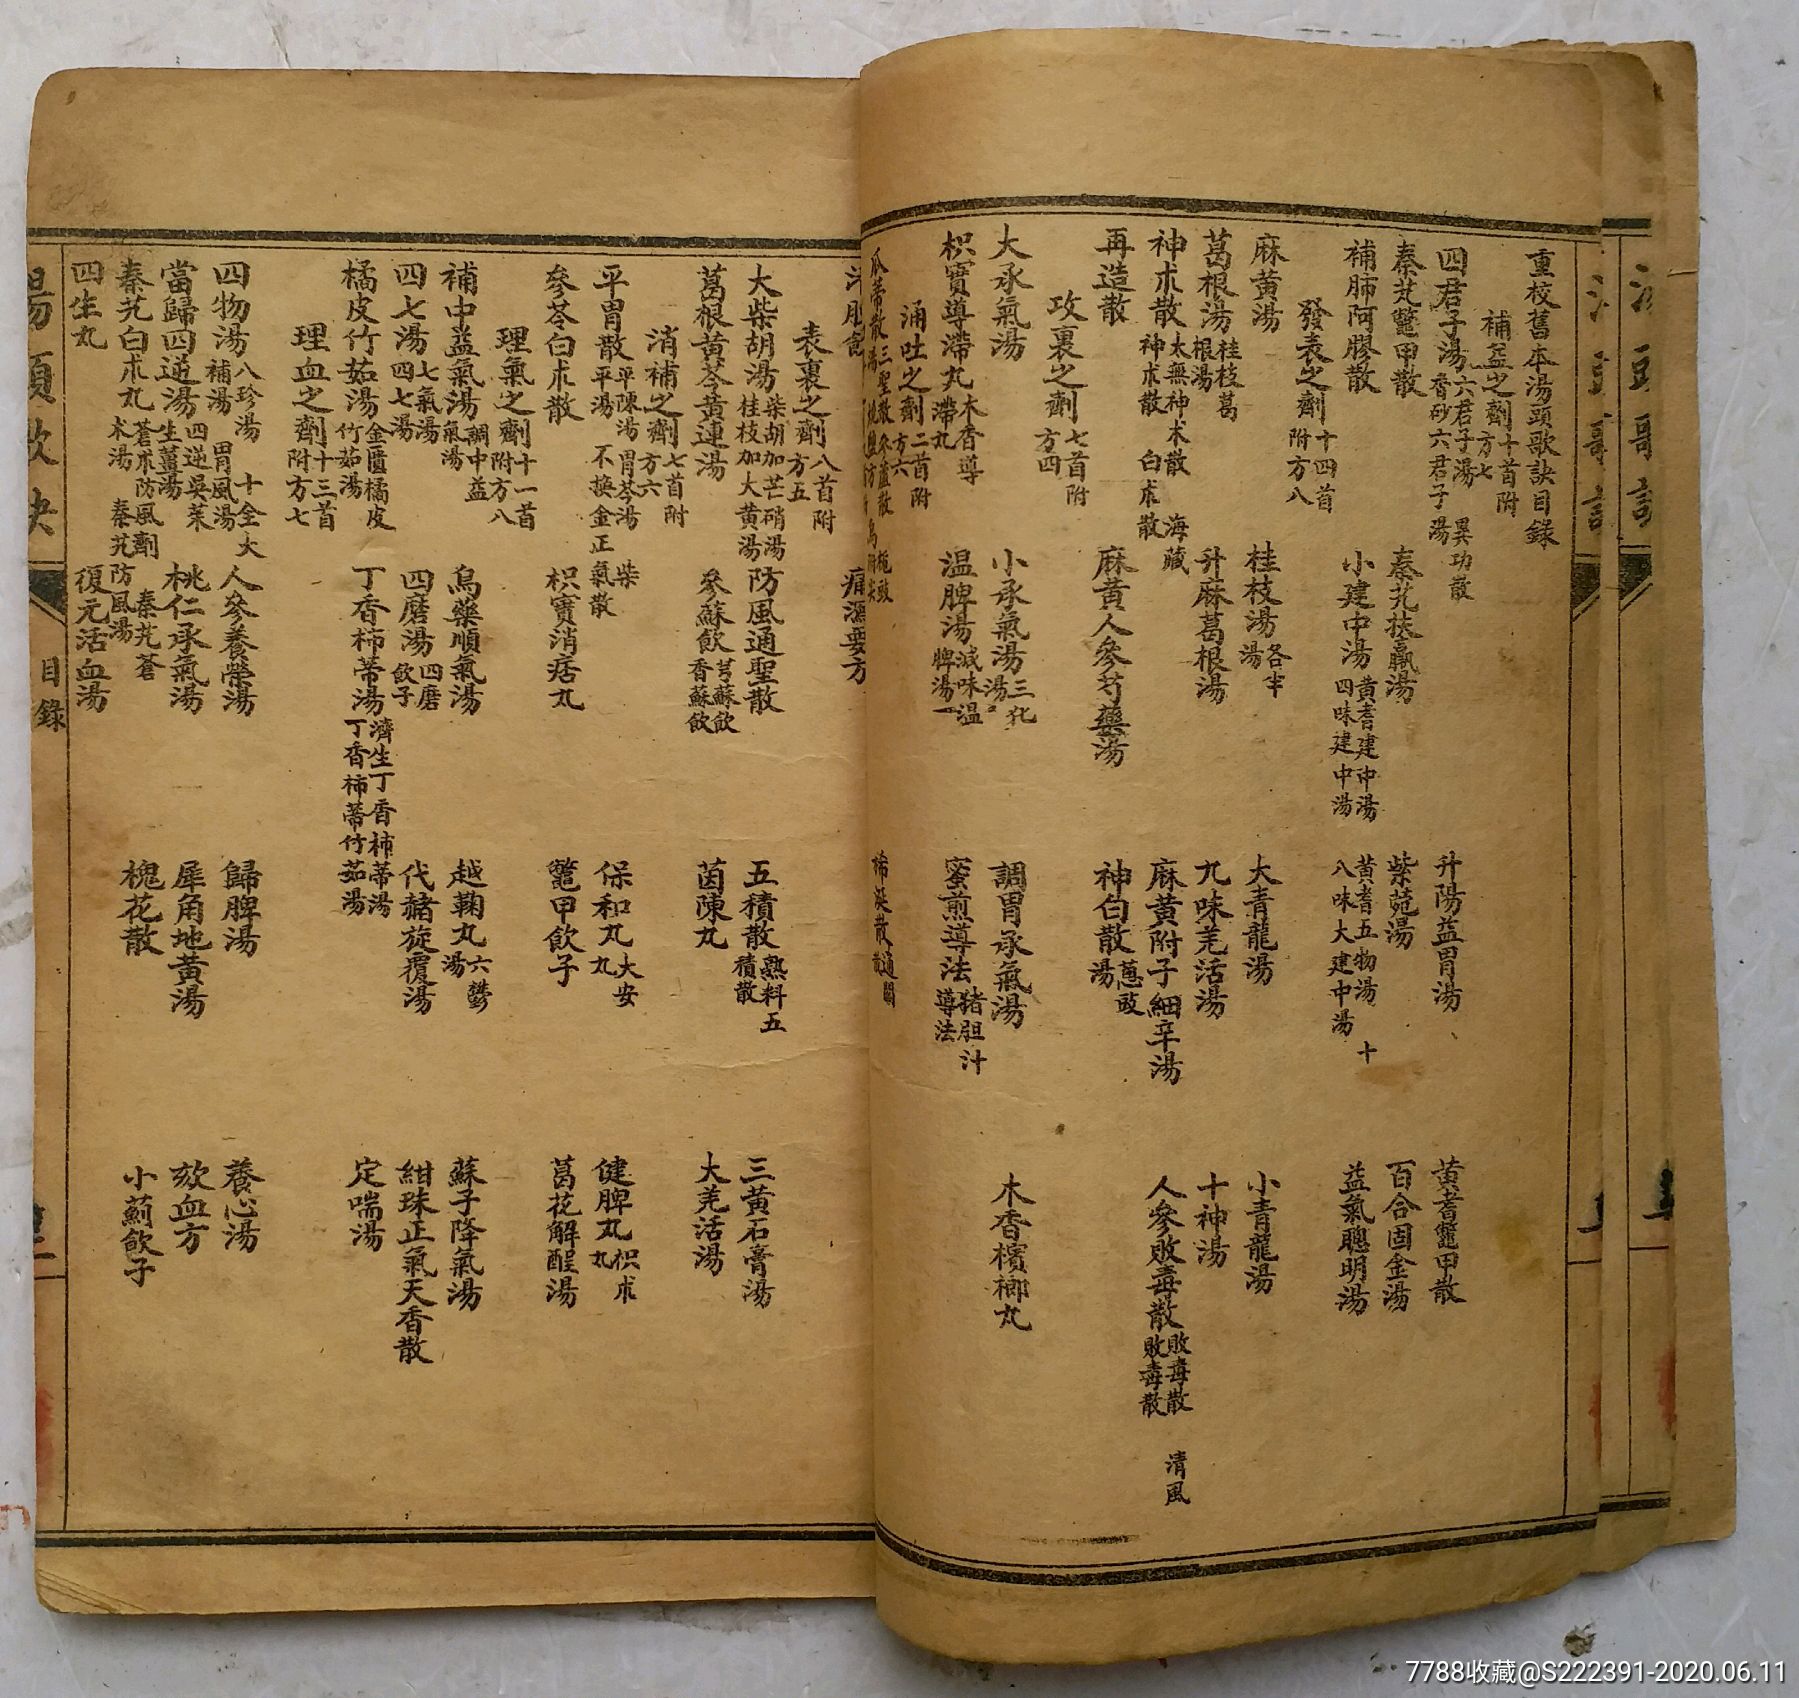 重校舊本湯頭歌訣目錄
補益之劑十首附方七
四君子湯 六君子湯 異功散 香砂六君子湯 升陽益胃湯 黃耆鼈甲散
秦艽鼈甲散 秦艽扶羸湯 紫菀湯 百合固金湯
補肺阿膠散 小建中湯 黃耆建中湯 黃耆五物湯 十四味建中湯 八味大建中湯 益氣聰明湯
發表之劑十四首附方八
麻黃湯 桂枝湯 各半湯 大青龍湯 小青龍湯
葛根湯 桂枝葛根湯 升麻葛根湯 九味羌活湯 十神湯
神朮散 太無神朮散 海藏神朮散 白朮散 麻黃附子細辛湯 人參敗毒散 敗毒散 清風敗毒散
再造散 麻黃人參芍藥湯 神白散 葱豉湯
攻裏之劑七首附方四
大承氣湯 小承氣湯 三化湯 調胃承氣湯 木香檳榔丸
枳實導滯丸 木香導滯丸 温脾湯 減味温脾湯 蜜煎導法 猪胆汁導法
涌吐之劑二首附方六
瓜蒂散 三聖散 參蘆散 梔豉湯 稀涎散 通關
痛瀉要方
表裏之劑八首附方五
大柴胡湯 柴胡加芒硝湯 桂枝加大黃湯 防風通聖散 五積散 熟料五積散 三黃石膏湯
葛根黃芩黃連湯 參蘇飲 芎蘇飲 香蘇飲 茵陳丸 大羌活湯
消補之劑七首附方六
平胃散 平陳湯 胃苓湯 柴平湯 不換金正氣散 保和丸 大安丸 健脾丸 枳朮丸
參苓白朮散 枳實消痞丸 鼈甲飲子 葛花解酲湯
理氣之劑十一首附方八
補中益氣湯 調中益氣湯 烏藥順氣湯 越鞠丸 六鬱湯 蘇子降氣湯
四七湯 七氣湯 四七湯 四磨湯 四磨飲子 代赭旋覆湯 紺珠正氣天香散
橘皮竹茹湯 金匱橘皮竹茹湯 丁香柿蒂湯 濟生丁香柿蒂湯 丁香柿蒂竹茹湯 定喘湯
理血之劑十三首附方七
四物湯 八珍湯 十全大補湯 胃風湯 人參養榮湯 歸脾湯 養心湯
當歸四逆湯 四逆吳茱生薑湯 桃仁承氣湯 犀角地黃湯 欬血方
秦艽白朮丸 蒼朮防風劑 秦艽蒼朮湯 秦艽防風湯 槐花散 小薊飲子
四生丸 復元活血湯
湯頭歌訣
目錄
7788收藏@S222391-2020.06.11